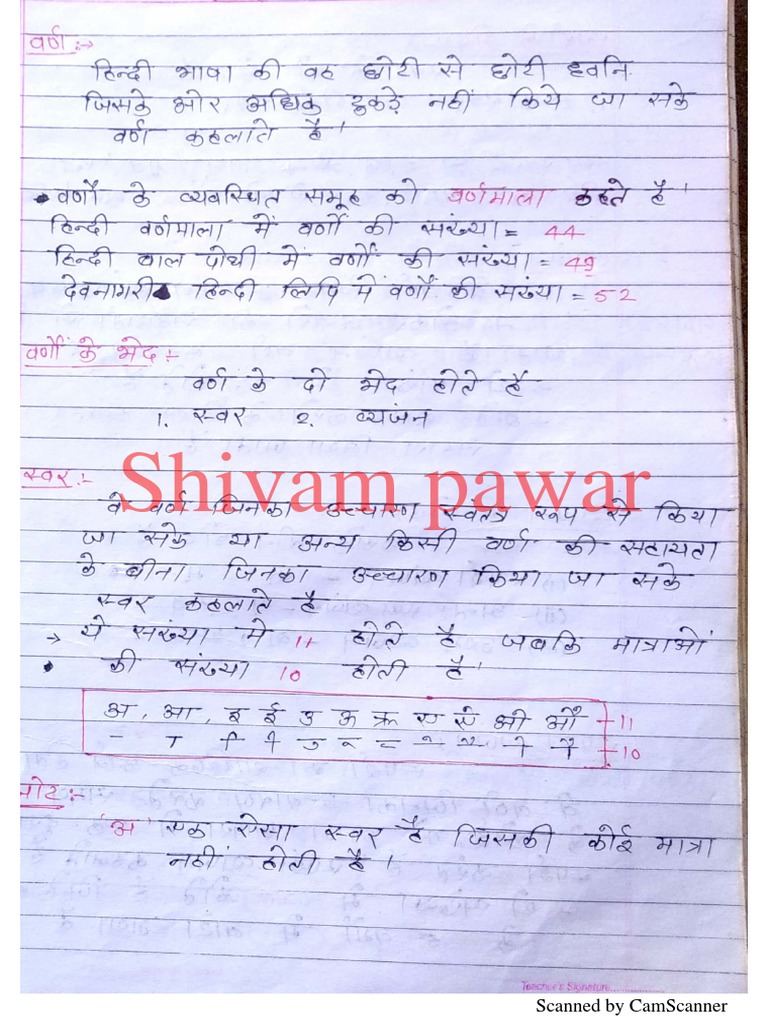 वर्ण :→
हिन्दी भाषा की वह छोटी से छोटी ध्वनि
जिसके और अधिक टुकड़े नहीं किये जा सके
वर्ण कहलाते है।
• वर्णों के व्यवस्थित समूह को वर्णमाला कहते है।
हिन्दी वर्णमाला में वर्णों की संख्या = 44
हिन्दी बाल पोथी में वर्णों की संख्या = 49
देवनागरी हिन्दी लिपि में वर्णों की संख्या = 52
वर्णों के भेद :-
वर्ण के दो भेद होते है
1. स्वर 2. व्यंजन
स्वर :-
Shivam pawar
वे वर्ण जिनका उच्चारण स्वतंत्र रूप से किया
जा सके या अन्य किसी वर्ण की सहायता
के बीना जिनका उच्चारण किया जा सके
स्वर कहलाते है
→ ये संख्या मे 11 होते है जबकि मात्राओं
• की संख्या 10 होती है।
अ, आ, इ ई उ ऊ ऋ ए ऐ ओ औ - 11
- ा ि ी ु ू ृ े ै ो ौ - 10
नोट :-
'अ' एक ऐसा स्वर है जिसकी कोई मात्रा
नहीं होती है।
Teacher's Signature
Scanned by CamScanner